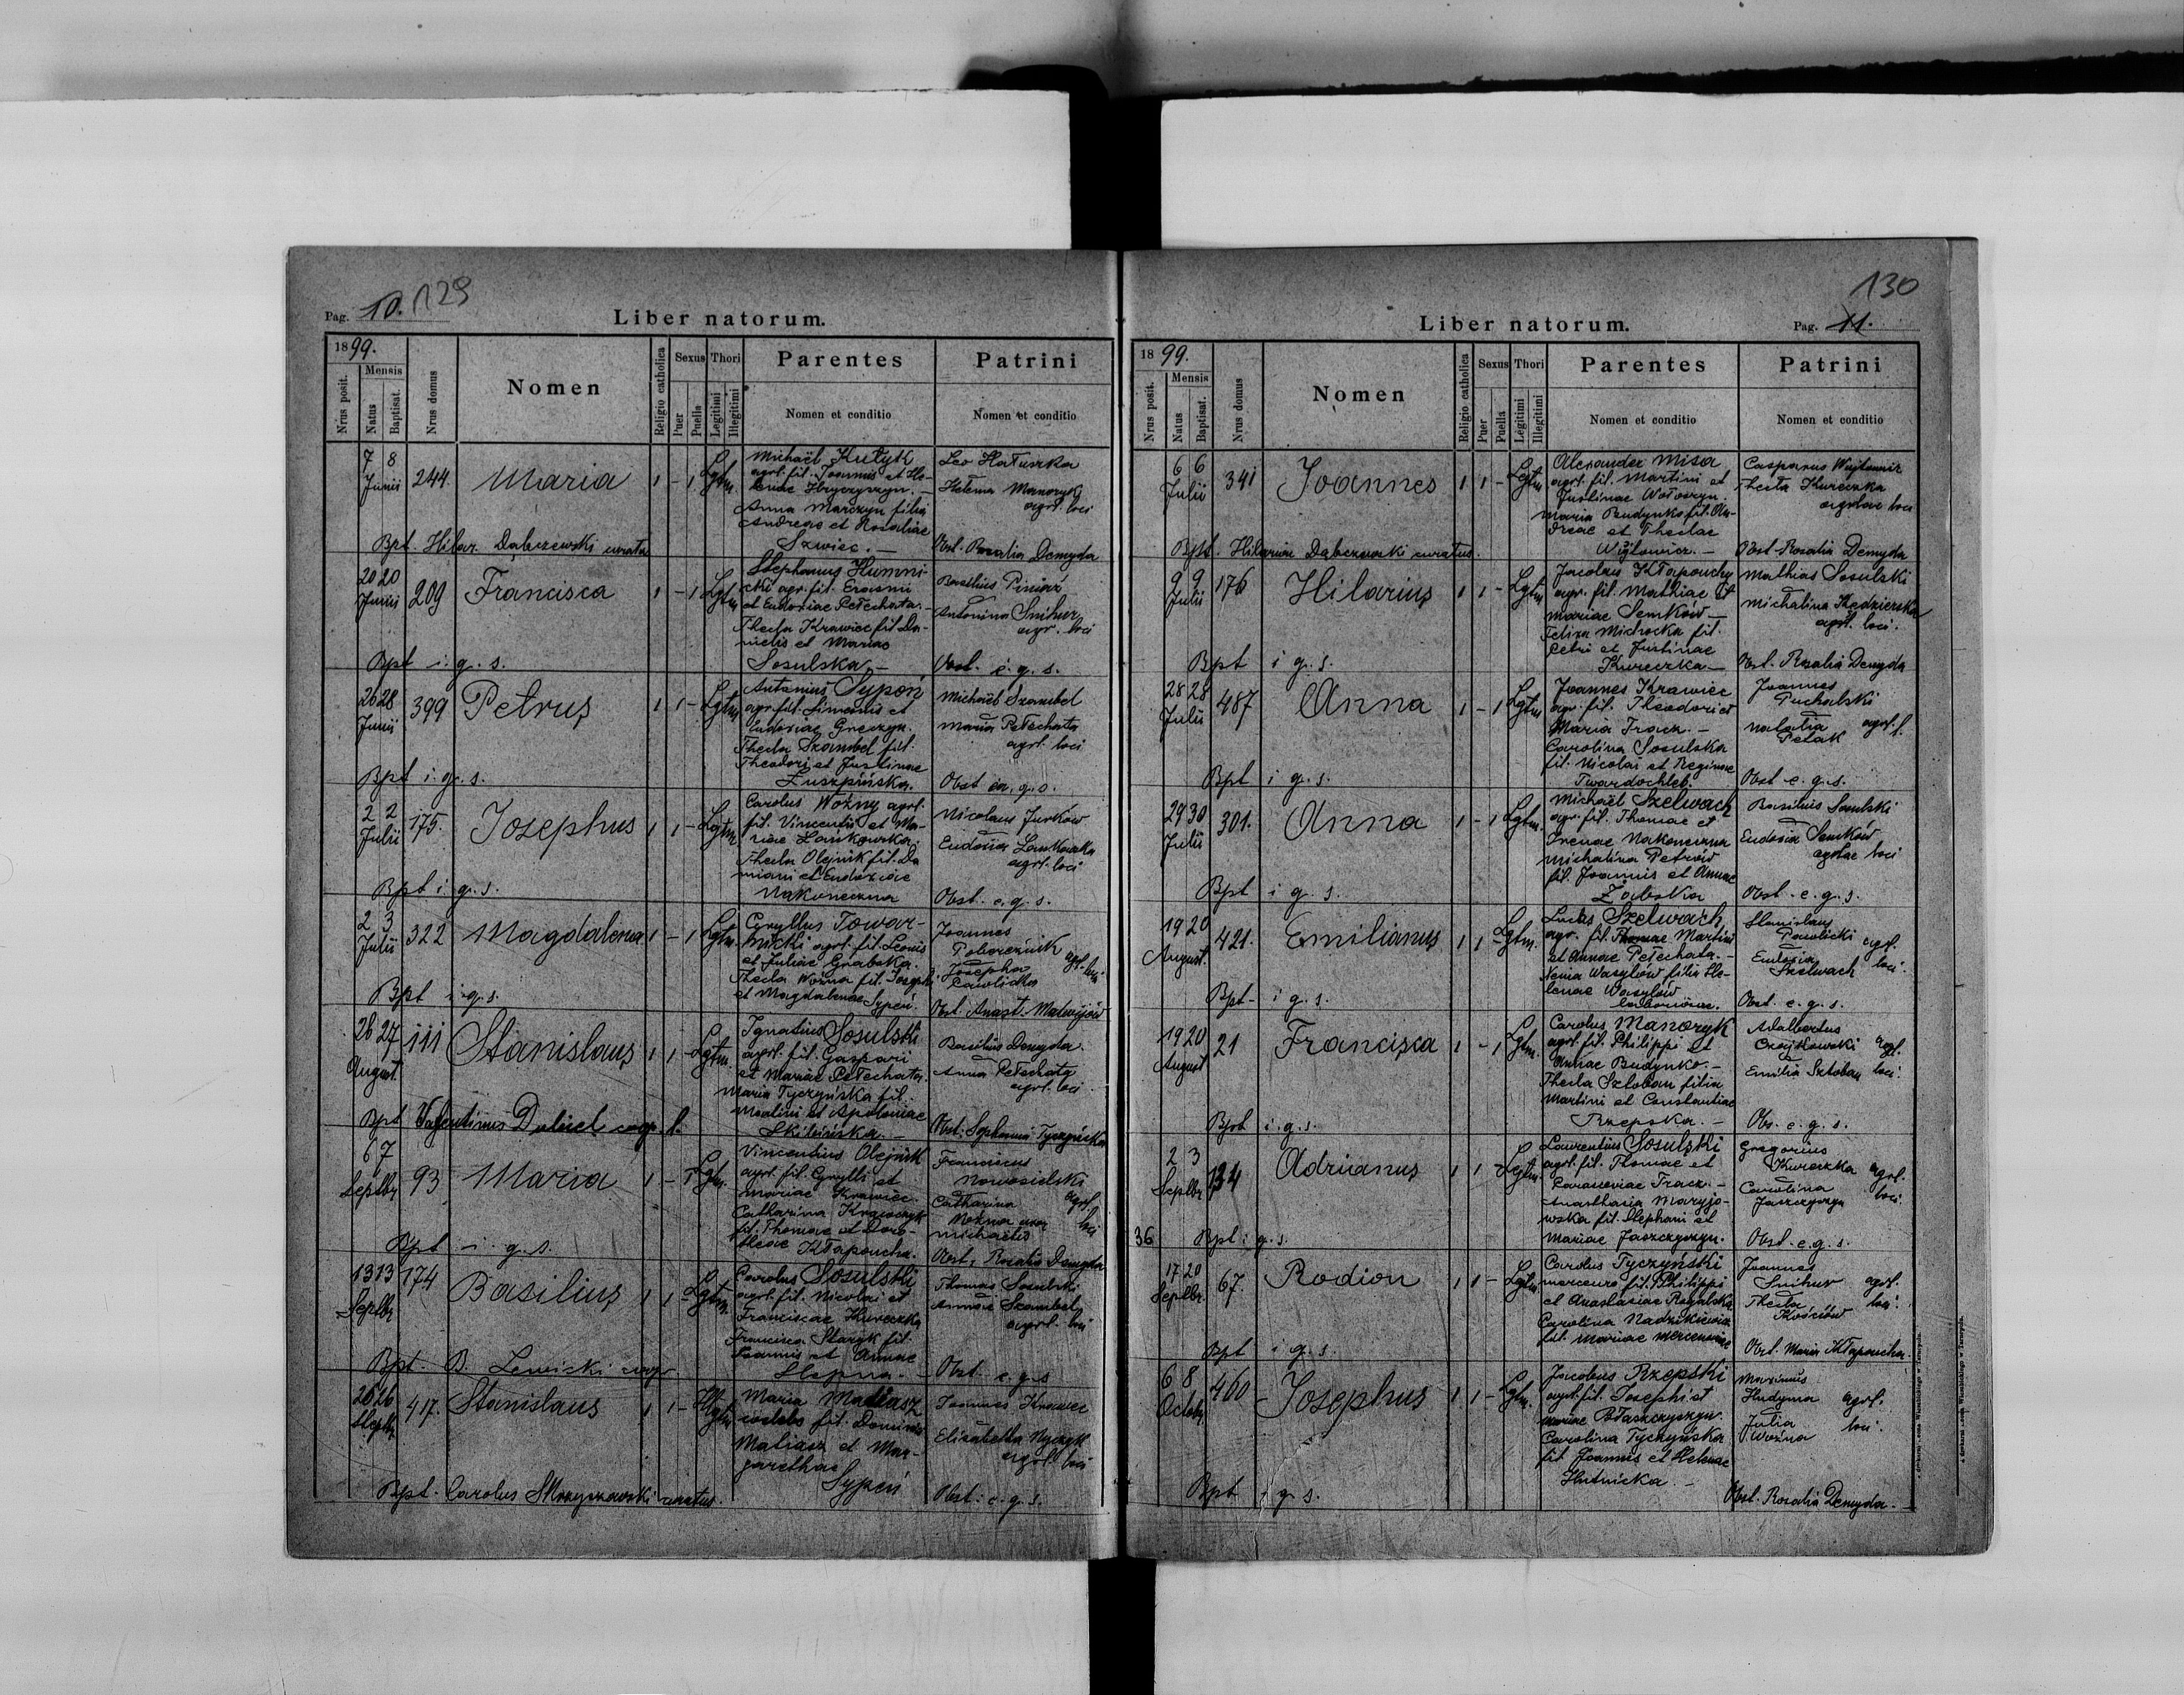 Pag. 10. 129
Liber natorum.
1899.
Nrus posit.
Mensis
Natus
Baptisat.
Nrus domus
Nomen
Religio catholica
Sexus
Puer
Puella
Thori
Legitimi
Illegitimi
Parentes
Nomen et conditio
Patrini
Nomen et conditio
7 8
Junii
244.
Maria
1 - 1 Lgtm.
Michaël Kutyk
agrl. fil. Joannis et He-
lenae Hryczyszyn. -
Anna Marczyn filia
Andreae et Rosaliae
Szwiec. -
Leo Hałuszka
Helena Manozyk
agrl. loci
Bpt. Hilar. Dąbczewski curatus
Obst. Rosalia Demyda
20 20
Junii
209
Francisca
1 - 1 Lgtm
Stephanus Humni-
cki agr. fil. Erasmi
et Eudoxiae Pełechata. -
Thecla Krawiec fil. Da-
nielis et Mariae
Sosulska. -
Basilius Piniaz
Antonina Snihur
agr. loci
Bpt i. g. s.
Obst. e. g. s.
26 28
Junii
399
Petrus
1 1 - Lgtm
Antonius Sypoń
agr. fil. Simeonis et
Eudoxiae Greczyn.
Thecla Szambel fil.
Theodori et Justinae
Łuszpińska.
Michaël Szambel
Maria Pełechata
agrl. loci
Bpt i. g. s.
Obst e. g. s.
2 2
Julii
175.
Josephus
1 1 - Lgtm
Carolus Woźny agrl.
fil. Vincentii et Ma-
riae Łańkowska.
Thecla Olejnik fil. Da
miani et Eudoxiae
Nakoneczna
Nicolaus Jurków
Eudoxia Łankowska
agrl. loci
Bpt i. g. s.
Obst. e. g. s.
2 3
Julii
322
Magdalena
1 - 1 Lgtm.
Cyryllus Towar-
nicki agrl. fil. Leonis
et Juliae Grabska.
Thecla Woźna fil. Josephi
et Magdalenae Sypeń.
Joannes
Poboreźnik
Josepha
Pawlicka
agrl. loci
Bpt i. g. s.
Obst. Anast. Matwijów
26 27
August.
111
Stanislaus
1 1 - Lgtm.
Ignatius Sosulski
agrl. fil. Gaspari
et Mariae Pełechata.
Maria Tyczyńska fil.
Martini et Apoloniae
Skibińska. -
Basilius Demyda
Anna Pełechata
agrl. loci
Bpt Valentinus Dubiel coop. l.
Obst. Sophania Tyczyńska
6 7
Septbr
93
Maria
1 - 1 Lgtm.
Vincentius Olejnik
agrl. fil. Cyrylli et
Mariae Krawiec.
Catharina Krawczyk
fil. Thomae et Doro-
theae Kłapoucha.
Franciscus
Nowosielski
Catharina
Woźna uxor
Michaelis
agrl. loci
Bpt i. g. s.
Obst. Rosalia Demyda
13 13
Septbr
174
Basilius
1 1 - Lgtm.
Carolus Sosulski
agrl. fil. Nicolai et
Franciscae Kureczka
Francisca Staryk fil.
Joannis et Annae
Ślepna. -
Thomas Sosulski
Anna Szambel
agrl. loci
Bpt. B. Lewicki coop.
Obst. e. g. s
26 26
Septbr
417.
Stanislaus
1 1 - Illgtm
Maria Matiasz
coelebs fil. Dominici
Matiasz et Mar-
garethae
Sypeń
Joannes Krawiec
Elisabetha Nyczyk
agrl. loci
Bpt. Carolus Skrzyszowski curatus.
Obst. e. g. s.
130
Liber natorum.
Pag. 11.
1899.
Nrus posit.
Mensis
Natus
Baptisat.
Nrus domus
Nomen
Religio catholica
Sexus
Puer
Puella
Thori
Legitimi
Illegitimi
Parentes
Nomen et conditio
Patrini
Nomen et conditio
6 6
Julii
341
Joannes
1 1 - Lgtm
Alexander Misa
agrl. fil. Martini et
Justinae Wołoszyn.
Maria Budynko fil. An-
dreae et Theclae
Wojtowicz. -
Casparus Wojtowicz
Thecla Kureczka
agrlae loci
Bpt. Hilarius Dąbczewski curatus.
Obst. Rosalia Demyda
9 9
Julii
176
Hilarius
1 1 - Lgtm
Jacobus Kłapouchy
agr. fil. Mathiae et
Mariae Semków -
Felixa Michocka fil.
Petri et Justinae
Kureczka -
Mathias Sosulski
Michalina Kędzierska
agrl. loci.
Bpt i g. s.
Obst. Rosalia Demyda
28 28
Julii
487
Anna
1 - 1 Lgtm
Joannes Krawiec
agr. fil. Theodori et
Maria Tracz. -
Carolina Sosulska
fil. Nicolai et Reginae
Twardochleb.
Joannes
Puchalski
Natalia
Pelak
agrl. l.
Bpt i g. s.
Obst e. g. s.
29 30
Julii
301.
Anna
1 - 1 Lgtm.
Michaël Szelwach
agr. fil. Thomae et
Irenae Nakoneczna
Michalina Petrów
fil. Joannis et Annae
Żabska
Basilius Sosulski
Eudoxia Semków
agrlae loci
Bpt i g. s.
Obst. e. g. s.
19 20
August.
421.
Emilianus
1 1 - Lgtm.
Lucas Szelwach
agr. fil. Thomae Martini
et Annae Pełechata. -
Xenia Wasylów filia He-
lenae Wasylów
laboriosae.
Stanislaus
Pawlicki
Eudoxia
Szelwach
agrl. loci.
Bpt - i g. s.
Obst. e. g. s.
19 20
August
21
Francisca
1 - 1 Lgtm.
Carolus Manozyk
agrl. fil. Philippi et
Annae Budynko. -
Thecla Sztoban filia
Martini et Constantiae
Rzepska. -
Adalbertus
Czajkowski
Emilia Sztoban
agrl. loci.
Bpt i. g. s.
Obs. e. g. s.
2 3
Septbr
134
Adrianus
1 1 - Lgtm.
Laurentius Sosulski
agrl. fil. Thomae et
Parasceviae Tracz. -
Anasthasia Maryjo-
wska fil. Stephani et
Mariae Jaszczyszyn.
Gregorius
Kureczka
Carolina
Jaszczyszyn
agrl. loci.
36
Bpt i g. s.
Obst. e. g. s.
17 20
Septbr.
67.
Rodion
1 1 - Lgtm.
Carolus Tyczyński
mercenr. fil. Philippi
et Anastasiae Rogalska
Carolina Nadzikiewicz
fil. Mariae mercenariae
Joannes
Snihur
Thecla
Kościów
agrl. loci.
Bpt i g. s.
Obst. Maria Kłapoucha.
6 8
Octobr
460
Josephus
1 1 - Lgtm.
Jacobus Rzepski
agrl. fil. Josephi et
Mariae Błaszczyszyn.
Carolina Tyczyńska
fil Joannis et Helenae
Hutnicka. -
Maximus
Hudyma
Julia
Woźna
agrl. loci.
Bpt i g. s.
Obst. Rosalia Demyda. -